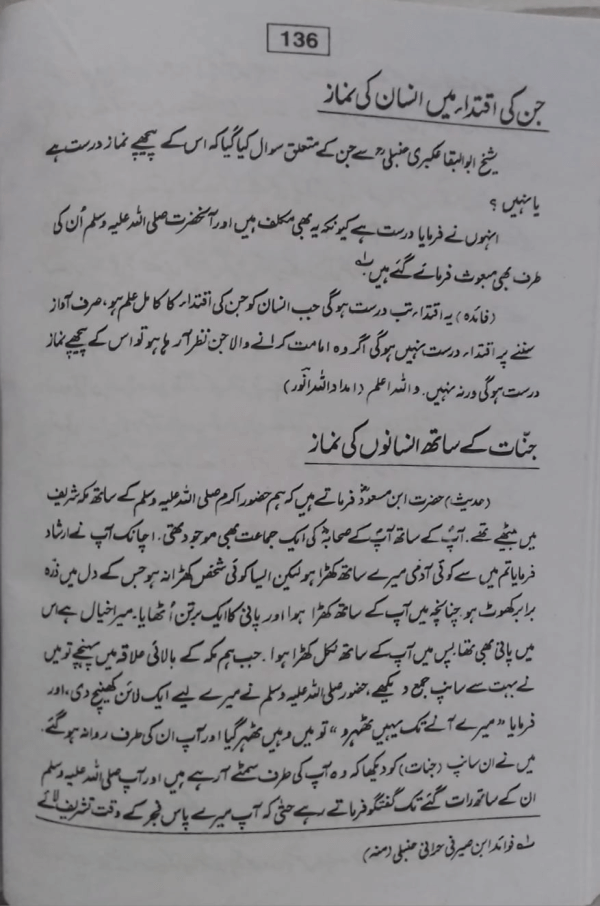 136
جن کی اقتداء میں انسان کی نماز
شیخ ابو البقا عکبری حنبلیؒ سے جن کے متعلق سوال کیا گیا کہ اس کے پیچھے نماز درست ہے
یا نہیں ؟
انہوں نے فرمایا درست ہے کیونکہ یہ بھی مکلف ہیں اور آنحضرت صلی اللہ علیہ وسلم اُن کی
طرف بھی مبعوث فرمائے گئے ہیں۔ لہ
(فائدہ) یہ اقتداء تب درست ہوگی جب انسان کو جن کی اقتداء کا کامل علم ہو، صرف آواز
سننے پر اقتداء درست نہیں ہوگی اگر وہ امامت کرانے والا جن نظر آ رہا ہو تو اس کے پیچھے نماز
درست ہوگی ورنہ نہیں۔ واللہ اعلم (امداد اللہ انور)
جنّات کے ساتھ انسانوں کی نماز
(حدیث) حضرت ابن مسعودؓ فرماتے ہیں کہ ہم حضور اکرم صلی اللہ علیہ وسلم کے ساتھ مکہ شریف
میں بیٹھے تھے۔ آپؐ کے ساتھ آپؐ کے صحابہؓ کی ایک جماعت بھی موجود تھی۔ اچانک آپ نے ارشاد
فرمایا تم میں سے کوئی آدمی میرے ساتھ کھڑا ہو لیکن ایسا کوئی شخص کھڑا نہ ہو جس کے دل میں ذرہ
برابر کھوٹ ہو چنانچہ میں آپ کے ساتھ کھڑا ہوا اور پانی کا ایک برتن اُٹھایا۔ میرا خیال ہے اس
میں پانی بھی تھا۔ پس میں آپ کے ساتھ نکل کھڑا ہوا۔ جب ہم مکہ کے بالائی علاقہ میں پہنچے تو میں
نے بہت سے سانپ جمع دیکھے، حضور صلی اللہ علیہ وسلم نے میرے لیے ایک لائن کھینچ دی، اور
فرمایا ”میرے آنے تک یہیں ٹھہرو“ تو میں وہیں ٹھہر گیا اور آپ ان کی طرف روانہ ہو گئے۔
میں نے ان سانپ (جنات) کو دیکھا کہ وہ آپ کی طرف سمٹے آ رہے ہیں اور آپ صلی اللہ علیہ وسلم
ان کے ساتھ رات گئے تک گفتگو فرماتے رہے حتیٰ کہ آپ میرے پاس فجر کے وقت تشریف لائے
لہ فوائد ابن صیرفی حرانی حنبلی (منہ)